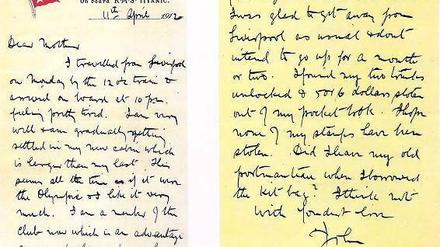 On board R.M.S. TITANIC.
11th April 1912
Dear Mother
I travelled from Liverpool
on Monday by the 12 oc train &
arrived on board at 10 pm.
feeling pretty tired. I am very
well & am gradually getting
settled in my new cabin which
is larger than my last. This
seems all the time as if it were
the Olympic & I like it very
much. I am a member of the
club now which is an advantage
I was glad to get away from
Liverpool as usual & dont
intend to go up for a month
or two. I found my two trunks
unlocked & 5 or 6 dollars stolen
out of my pocket book. I hope
none of my stamps have been
stolen. Did I leave my old
portmanteau when I borrowed
the kit bag? I think not
With fondest love
John